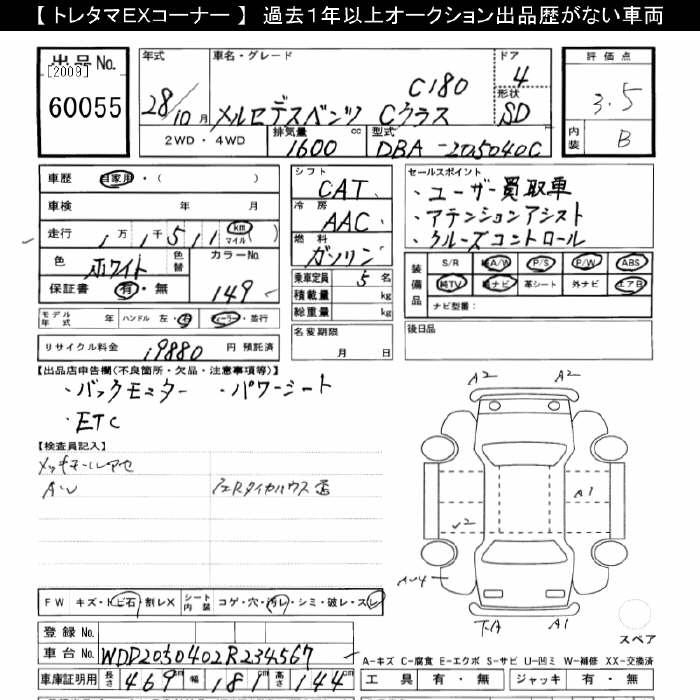 【 トレタマEXコーナー 】 過去1年以上オークション出品歴がない車両
出品 No.
[2009]
60055
年式
28/10 月
車名・グレード
C180
メルセデスベンツ Cクラス
ドア
4
形状
SD
評価点
3.5
内装
B
2WD・4WD
排気量
1600 cc
型式
DBA-205040C
車歴
自家用・( )
車検 年 月
走行
1万1千511 km マイル
色
ホワイト
色替
カラーNo.
149
保証書 有・無
モデル年式 年
ハンドル 左・右
ディーラー・並行
リサイクル料金 19880 円 預託済
シフト
CAT
冷房
AAC
燃料
ガソリン
乗車定員 5 名
積載量 kg
総重量 kg
名変期限
月 日
セールスポイント
・ユーザー買取車
・アテンションアシスト
・クルーズコントロール
装備品
S/R 純A/W P/S P/W ABS
純TV 純ナビ 革シート 外ナビ エアB
ナビ型番:
後日品
【出品店申告欄(不良箇所・欠品・注意事項等)】
・バックモニター ・パワーシート
・ETC
【検査員記入】
A・U
FW キズ・トビ石・割レX
シート内装 コゲ・穴・汚レ・シミ・破レ・スレ
A2 A2
A1
A1
スペア
登録 No.
車台 No. WDD2050402R234567
A-キズ C-腐食 E-エクボ S-サビ U-凹ミ W-補修 XX-交換済
車庫証明用 長さ 469 cm 幅 181 cm 高さ 144 cm
工具 有・無 ジャッキ 有・無